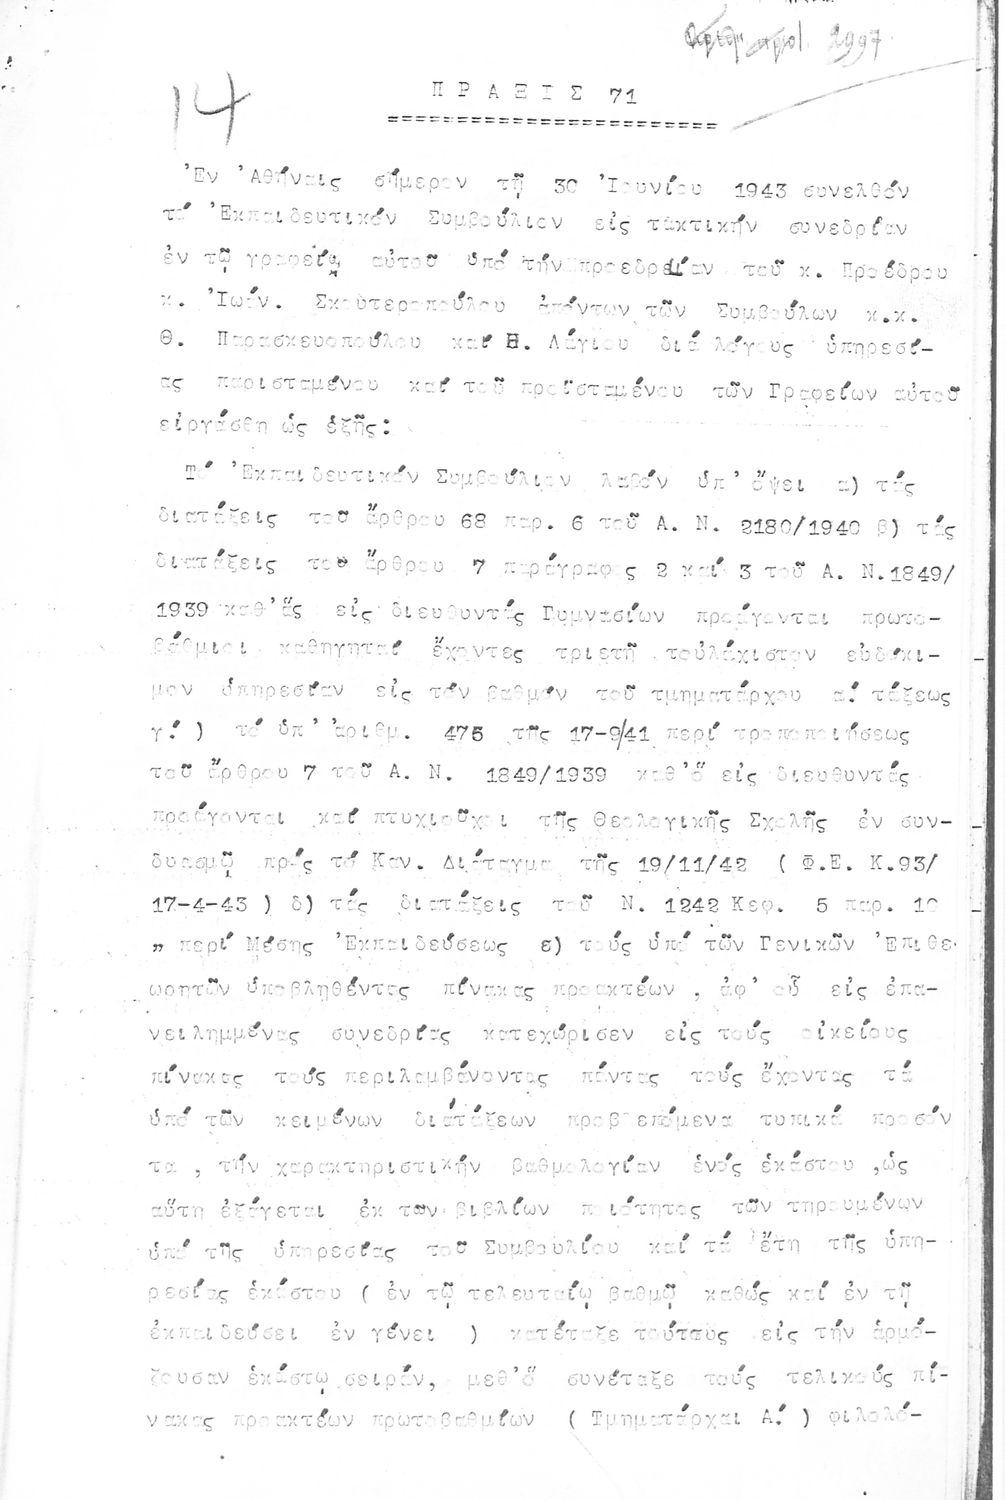 2997
14
ΠΡΑΞΙΣ 71
Ἐν Ἀθήναις σήμερον τῇ 30 Ἰουνίου 1943 συνελθόν
τό Ἐκπαιδευτικόν Συμβούλιον εἰς τακτικήν συνεδρίαν
ἐν τῷ γραφείῳ αὐτοῦ ὑπό τήν προεδρείαν τοῦ κ. Προέδρου
κ. Ἰωάν. Σκουτεροπούλου ἀπόντων τῶν Συμβούλων κ.κ.
Θ. Παρασκευοπούλου καί Η. Λάγιου διά λόγους ὑπηρεσί-
ας παρισταμένου καί τοῦ προϊσταμένου τῶν Γραφείων αὐτοῦ
εἰργάσθη ὡς ἑξῆς:
Τό Ἐκπαιδευτικόν Συμβούλιον λαβόν ὑπ' ὄψει α) τάς
διατάξεις τοῦ ἄρθρου 68 παρ. 6 τοῦ Α. Ν. 2180/1940 β) τάς
διατάξεις τοῦ ἄρθρου 7 παράγραφος 2 καί 3 τοῦ Α. Ν. 1849/
1939 καθ' ἅς εἰς διευθυντάς Γυμνασίων προάγονται πρωτο-
βάθμιοι καθηγηταί ἔχοντες τριετῆ τοὐλάχιστον εὐδόκι-
μον ὑπηρεσίαν εἰς τόν βαθμόν τοῦ τμηματάρχου α.΄ τάξεως
γ.΄ ) τό ὑπ' ἀριθμ. 475 τῆς 17-9/41 περί τροποποιήσεως
τοῦ ἄρθρου 7 τοῦ Α. Ν. 1849/1939 καθ' ὅ εἰς διευθυντάς
προάγονται καί πτυχιοῦχοι τῆς Θεολογικῆς Σχολῆς ἐν συν-
δυασμῷ πρός τό Καν. Διάταγμα τῆς 19/11/42 ( Φ.Ε. Κ.93/
17-4-43 ) δ) τάς διατάξεις τοῦ Ν. 1242 Κεφ. 5 παρ. 10
„ περί Μέσης Ἐκπαιδεύσεως ε) τούς ὑπό τῶν Γενικῶν Ἐπιθε-
ωρητῶν ὑποβληθέντας πίνακας προακτέων , ἀφ' οὗ εἰς ἐπα-
νειλημμένας συνεδρίας κατεχώρισεν εἰς τούς οἰκείους
πίνακας τούς περιλαμβάνοντας πάντας τούς ἔχοντας τά
ὑπό τῶν κειμένων διατάξεων προβλεπόμενα τυπικά προσόν
τα , τήν χαρακτηριστικήν βαθμολογίαν ἑνός ἑκάστου ,ὡς
αὕτη ἐξάγεται ἐκ των βιβλίων ποιότητος τῶν τηρουμένων
ὑπό τῆς ὑπηρεσίας τοῦ Συμβουλίου καί τά ἔτη τῆς ὑπη-
ρεσίας ἑκάστου ( ἐν τῷ τελευταίῳ βαθμῷ καθώς καί ἐν τῇ
ἐκπαιδεύσει ἐν γένει ) κατέταξε τούτους εἰς τήν ἁρμό-
ζουσαν ἑκάστῳ σειράν, μεθ' ὅ συνέταξε τούς τελικούς πί-
νακας προακτέων πρωτοβαθμίων ( Τμηματάρχαι Α.΄ ) φιλολό-